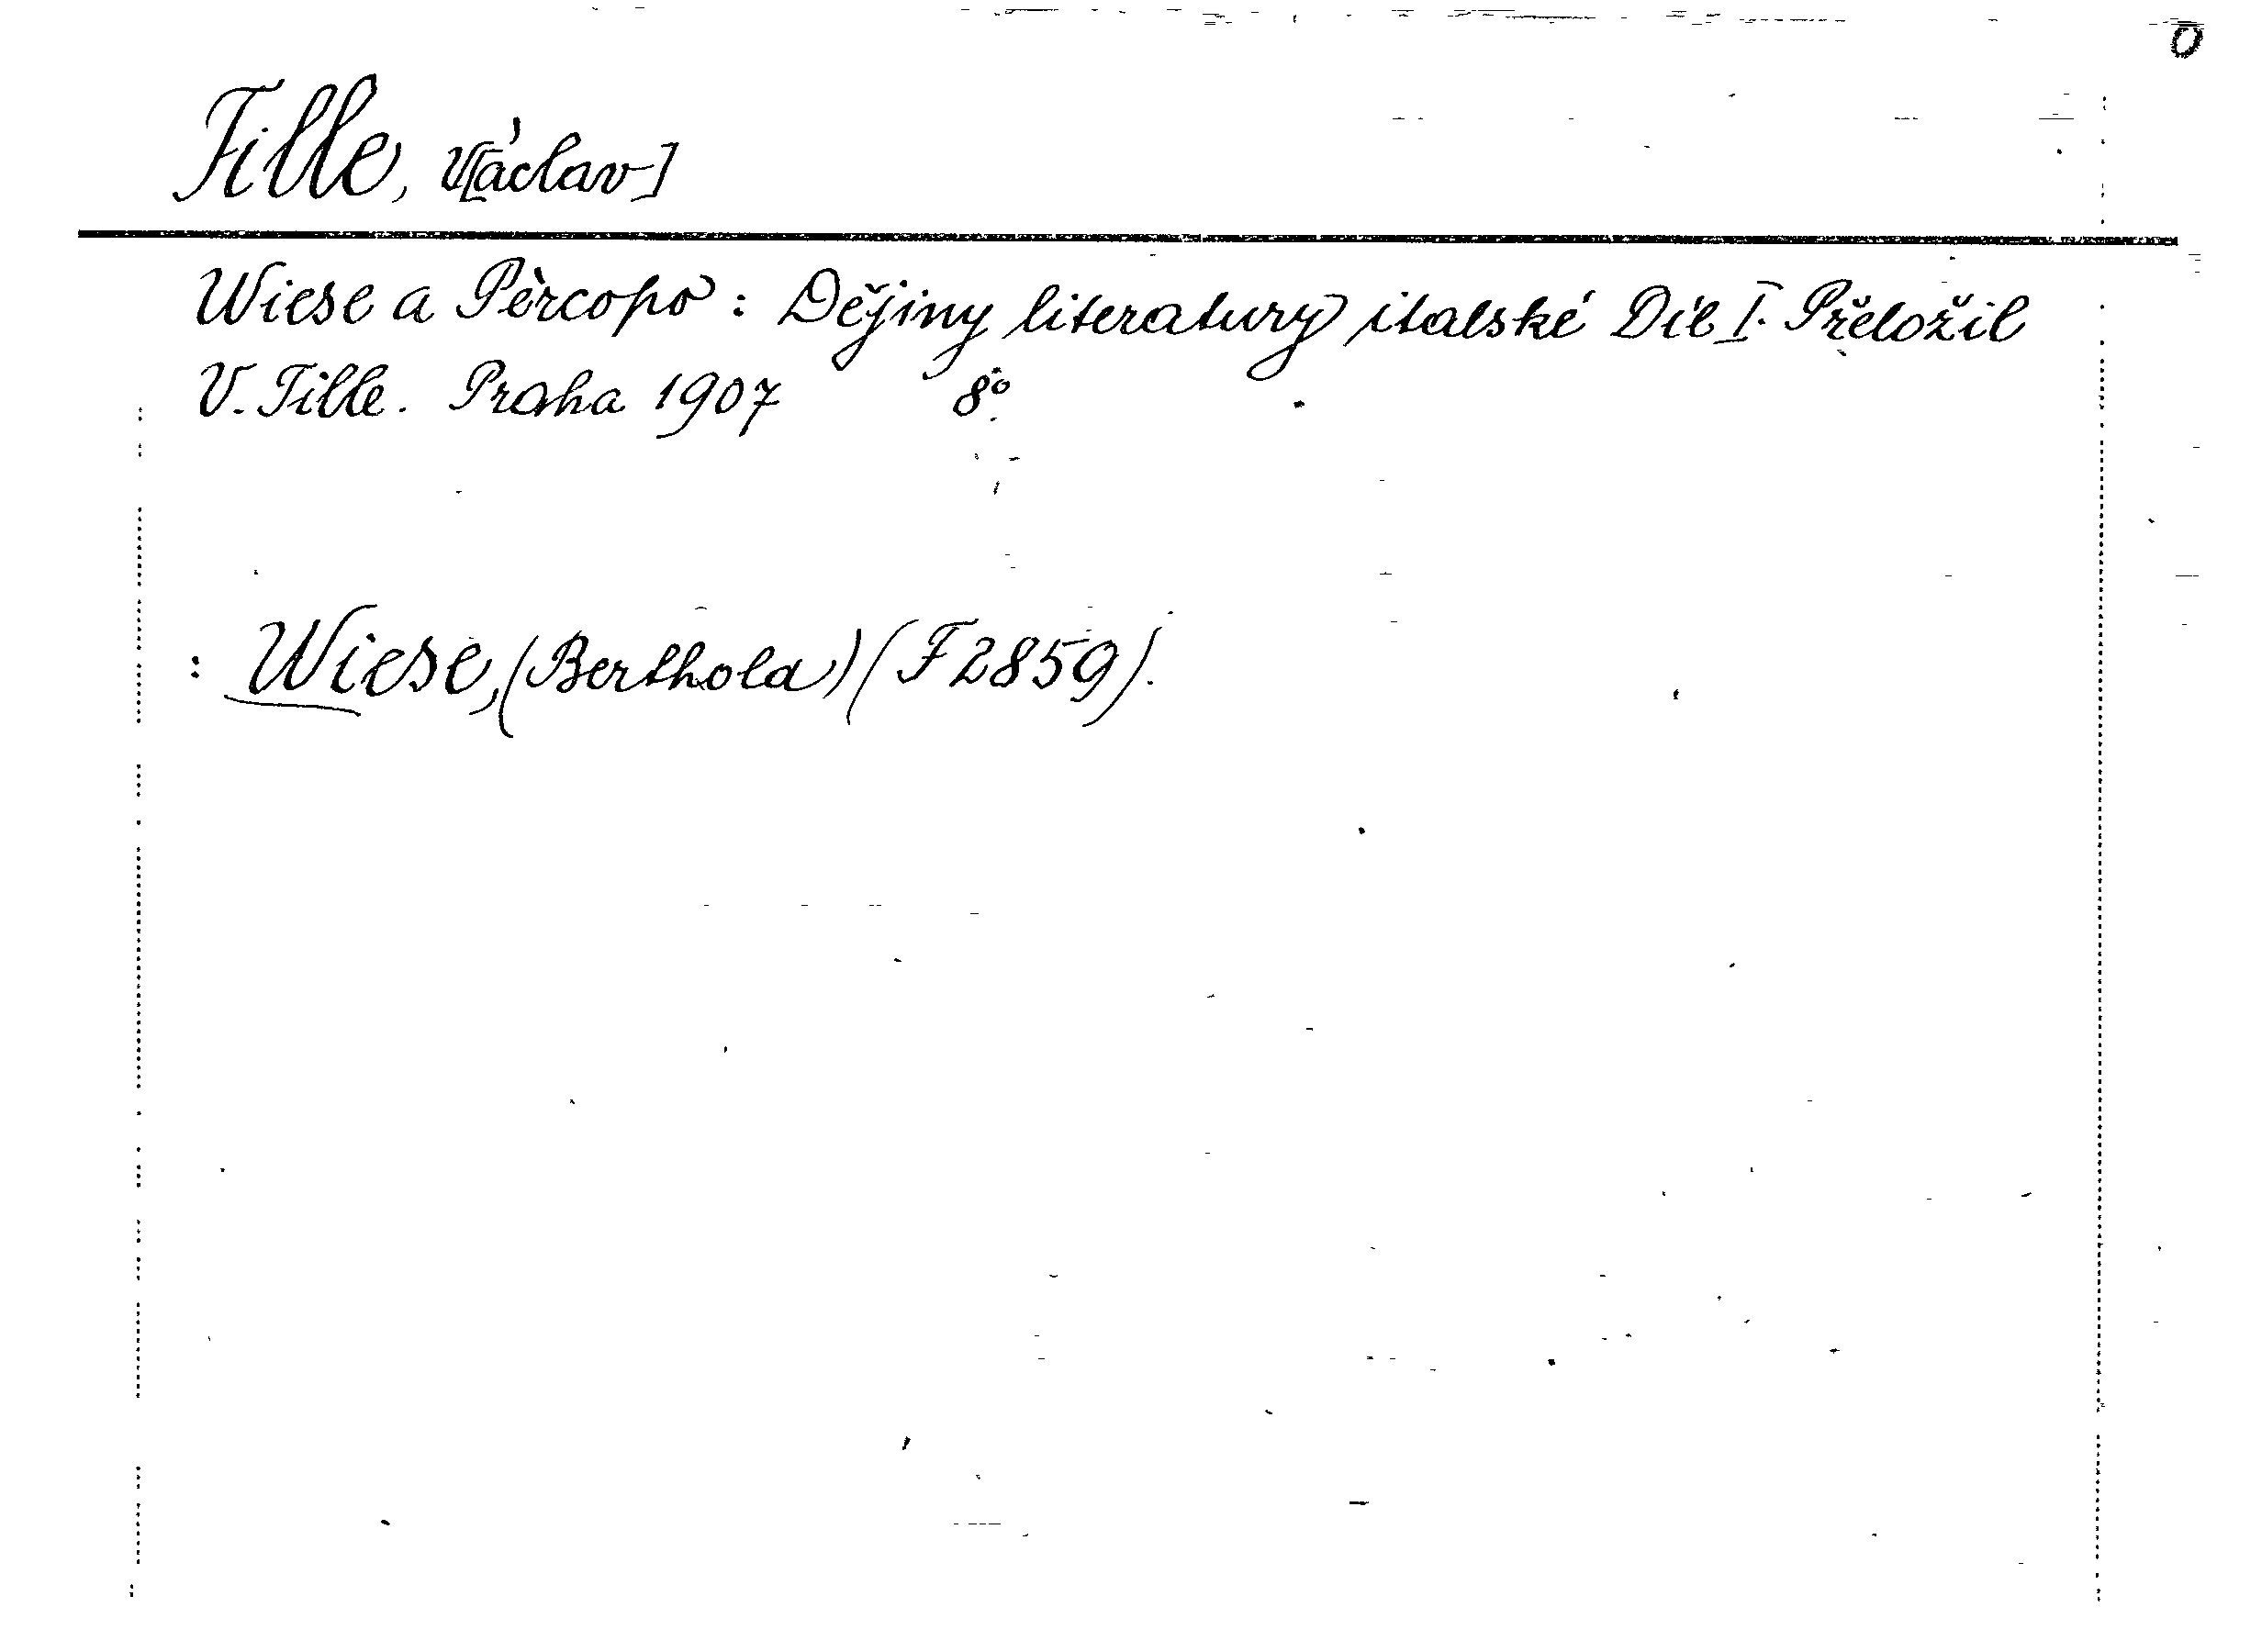 0
Tille, V[áclav]
Wiese a Pèrcopo: Dějiny literatury italské Díl I. Přeložil
V. Tille. Praha 1907 8°.
: Wiese, (Berthold) (F 2859).